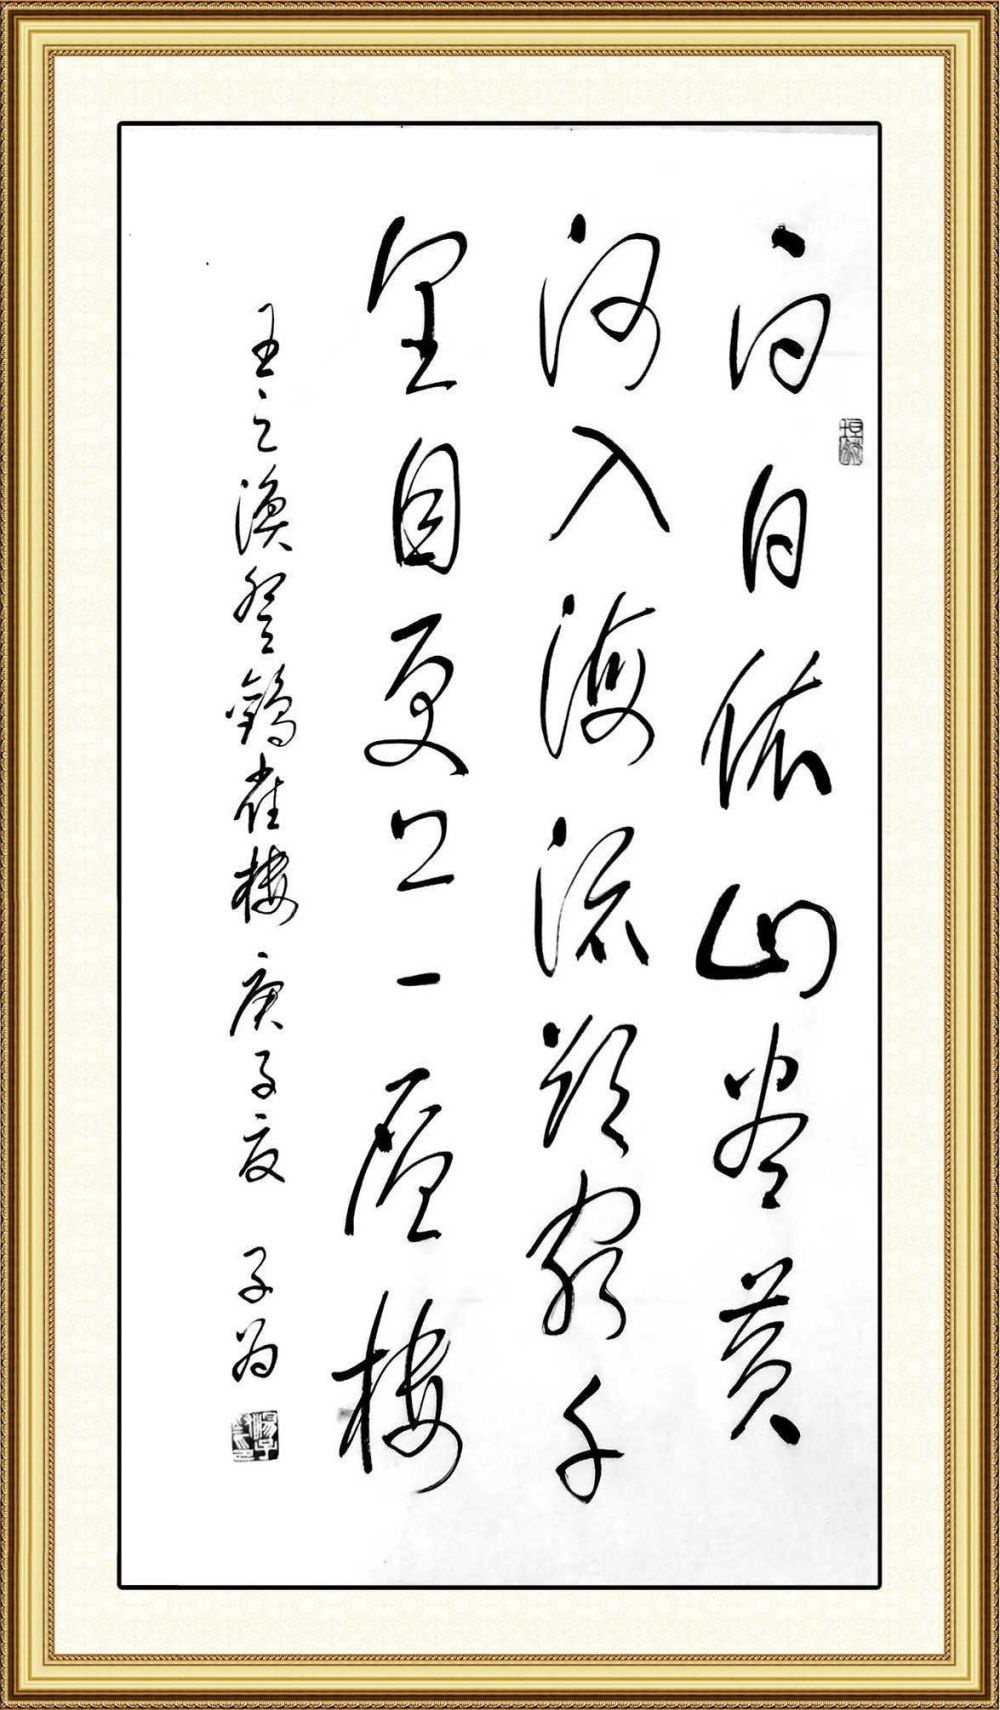 白日依山尽黄
河入海流欲穷千
里目更上一层楼
王之涣登鹳雀楼 庚子夏 子为